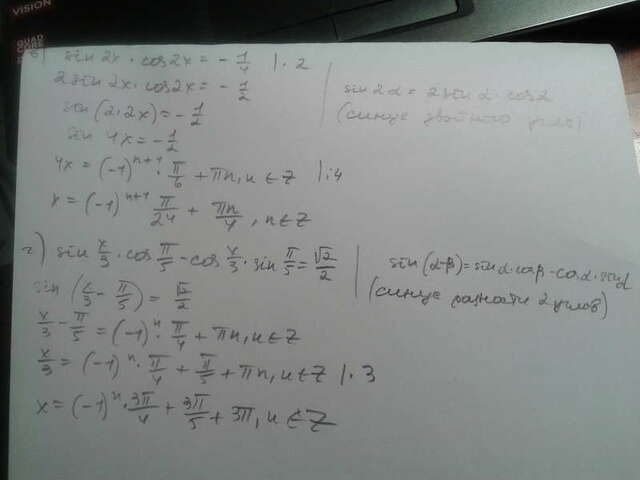 VISION
QUAD
CORE
в) sin 2x · cos 2x = - 1/4 | · 2
2 sin 2x · cos 2x = - 1/2
sin (2 · 2x) = - 1/2
sin 4x = - 1/2
4x = (-1)^{n+1} · π/6 + πn, n ∈ Z | :4
x = (-1)^{n+1} π/24 + πn/4, n ∈ Z
sin 2α = 2 sin α · cos α
(синус двойного угла)
г) sin x/3 · cos π/5 - cos x/3 · sin π/5 = √2/2
sin (x/3 - π/5) = √2/2
x/3 - π/5 = (-1)^n · π/4 + πn, n ∈ Z
x/3 = (-1)^n · π/4 + π/5 + πn, n ∈ Z | · 3
x = (-1)^n · 3π/4 + 3π/5 + 3π, n ∈ Z
sin (α-β) = sin α · cos β - cos α · sin
(синус разности 2 углов)